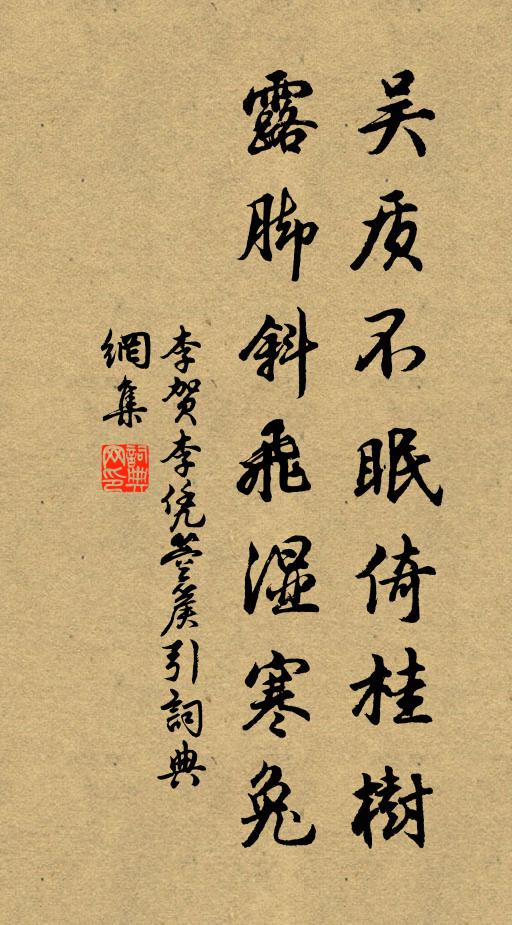 吴质不眠倚桂樹
露脚斜飛湿寒兔
李賀李凭箜篌引詞典
網集
詞典
网印